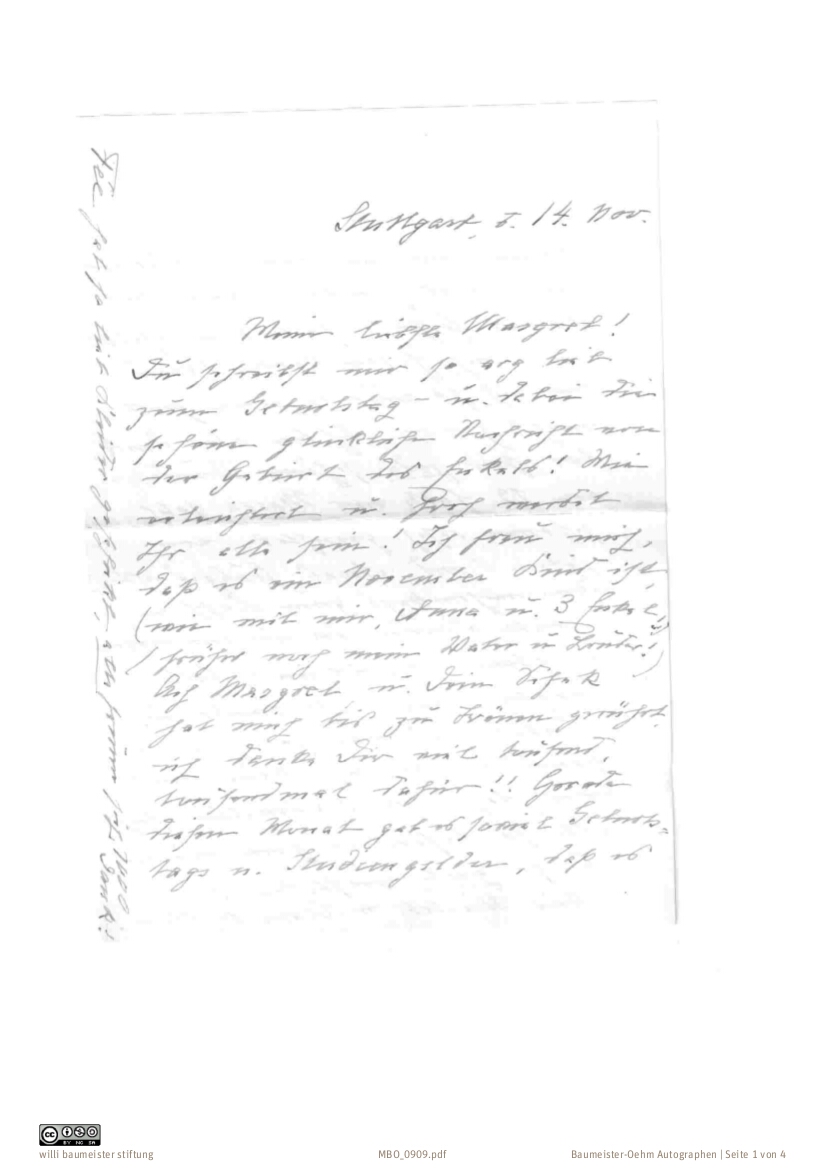 Stuttgart, d. 14. Nov.
Meine liebste Margret!
Du schreibst mir so arg lieb
zum Geburtstag – u. dabei die
schöne glückliche Nachricht von
der Geburt des Enkels! Wie
erleichtert u. froh werdet
Ihr alle sein! Ich freue mich,
daß es ein November Kind ist,
(wie mit mir, Anna u. 3 Enkel!)
(früher noch mein Vater u Bruder!)
Ach Margret u. Dein Scheck
hat mich bis zu Tränen gerührt
ich danke Dir viel tausend,
tausendmal dafür!! Gerade
diesen Monat gab es soviel Geburts-
tags u. Studiengelder, daß es
hat so lieb Kleider geschickt, alle
Dank!
willi baumeister stiftung
MBO_0909.pdf
Baumeister-Oehm Autographen | Seite 1 von 4
CC BY NC SA